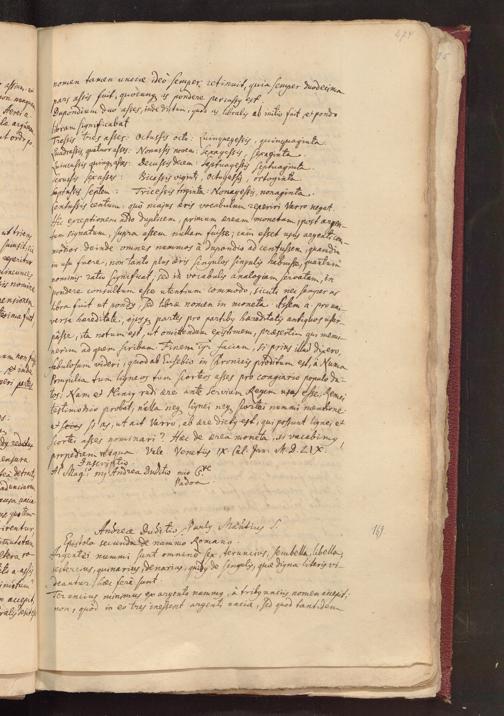 474
nomen tamen unciæ ideo semper retinuit, quia semper duodecima
pars assis fuit, quocunq is pondere percussus est.
Dupondium duo asses, inde dictum, quod is libralis ab initio fuit, et pondo
libram significabat
Tressis tres asses: Octussis octo: Quinquagessis, quinquaginta.
Quadrassis, quatuor asses: Nonussis novem: Sexagessis, sexaginta.
Quincussis quinq asses: Decussis decem: Septuagessis septuaginta.
Sexussis sex asses: Bicessis viginti, Octogessis, octoginta.
Septussis septem: Tricessis triginta: Nonagessis, nonaginta.
Centussis centum: quo maius æris vocabulum reperiri Varro negat.
Hic exceptionem duplicem, primum æream monetam, post argen-
tum signatum, supra assem nullam fuisse; cum esset usus argenti com
modior deinde omnes nummos a dupondio ad centussem, quamdiu
in usu fuere, non tantum æris singulos singulis habuisse, quantum
nominis ratio significet, sed in vocabulis analogiam servatam, in
pondere consultum esse utentium commodo, sicuti nec semper as
libra fuit ut pondo, sed libræ nomen in moneta. Assem pro uni-
versa hæreditate, eiusq partes pro partibus hæreditatis antiquos usur-
passe, ita notum est, ut omittendum existimem, præsertim qui memi-
nerim ad quem scribam. Finem igitur faciam, si prius illud dixero,
fabulosum videri, quod ab Eusebio in Chronicis proditum est, a Numa
Pompilio tum ligneos tum scorteos asses pro congiario populo da-
tos. Nam et Plinius rudi ære ante Servium Regem usos esse, Remei
testimonio probat, nulla neq lignei neq scortei nummi mentione
et as, ut ait Varro, ab ære dictus est, qui possunt lignei et
scortei asses nominari? Hæc de ærea moneta, si vacabimus,
propediem reliqua. Vale. Venetiis IX Cal. Jun. M.D.LIX.
Inscriptio
Al Magco my Andrea Duditio mio
Padoa
Andreæ Duditio, Paulus Manutius S. 169
Epistola secunda de nummo Romano
Argentei nummi sunt omnino sex, teruncius, sembella, libella,
sestertius, quinarius, denarius, quibus de singulis, quæ digna literis vi-
deantur, hæc fere sunt.
Teruncius minimus ex argento nummus, a tribus unciis nomen accepit,
non, quod in eo tres inessent argenti unciæ, sed quod tantidem